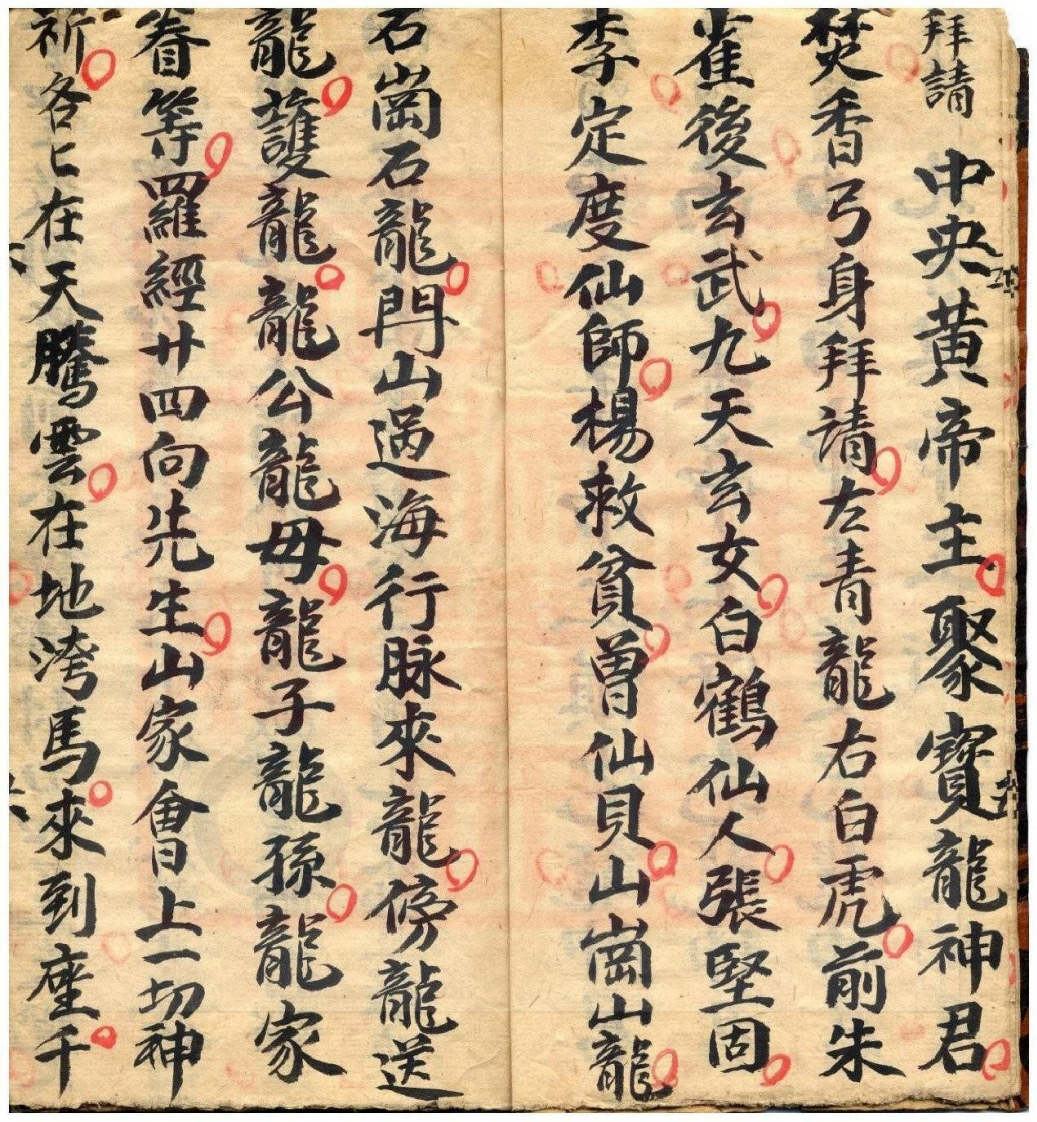 拜請 中央黃帝主聚寶龍神君
焚香弓身拜請左青龍右白虎前朱
雀後玄武九天玄女白鶴仙人張堅固
李定度仙師楊救貧曾仙貝山崗山龍
石崗石龍門山過海行脉來龍傍龍送
龍護龍龍公龍母龍子龍孫龍家
眷等羅經廿四向先生山家會上一切神
祈各上在天騰雲在地洿馬來到座千